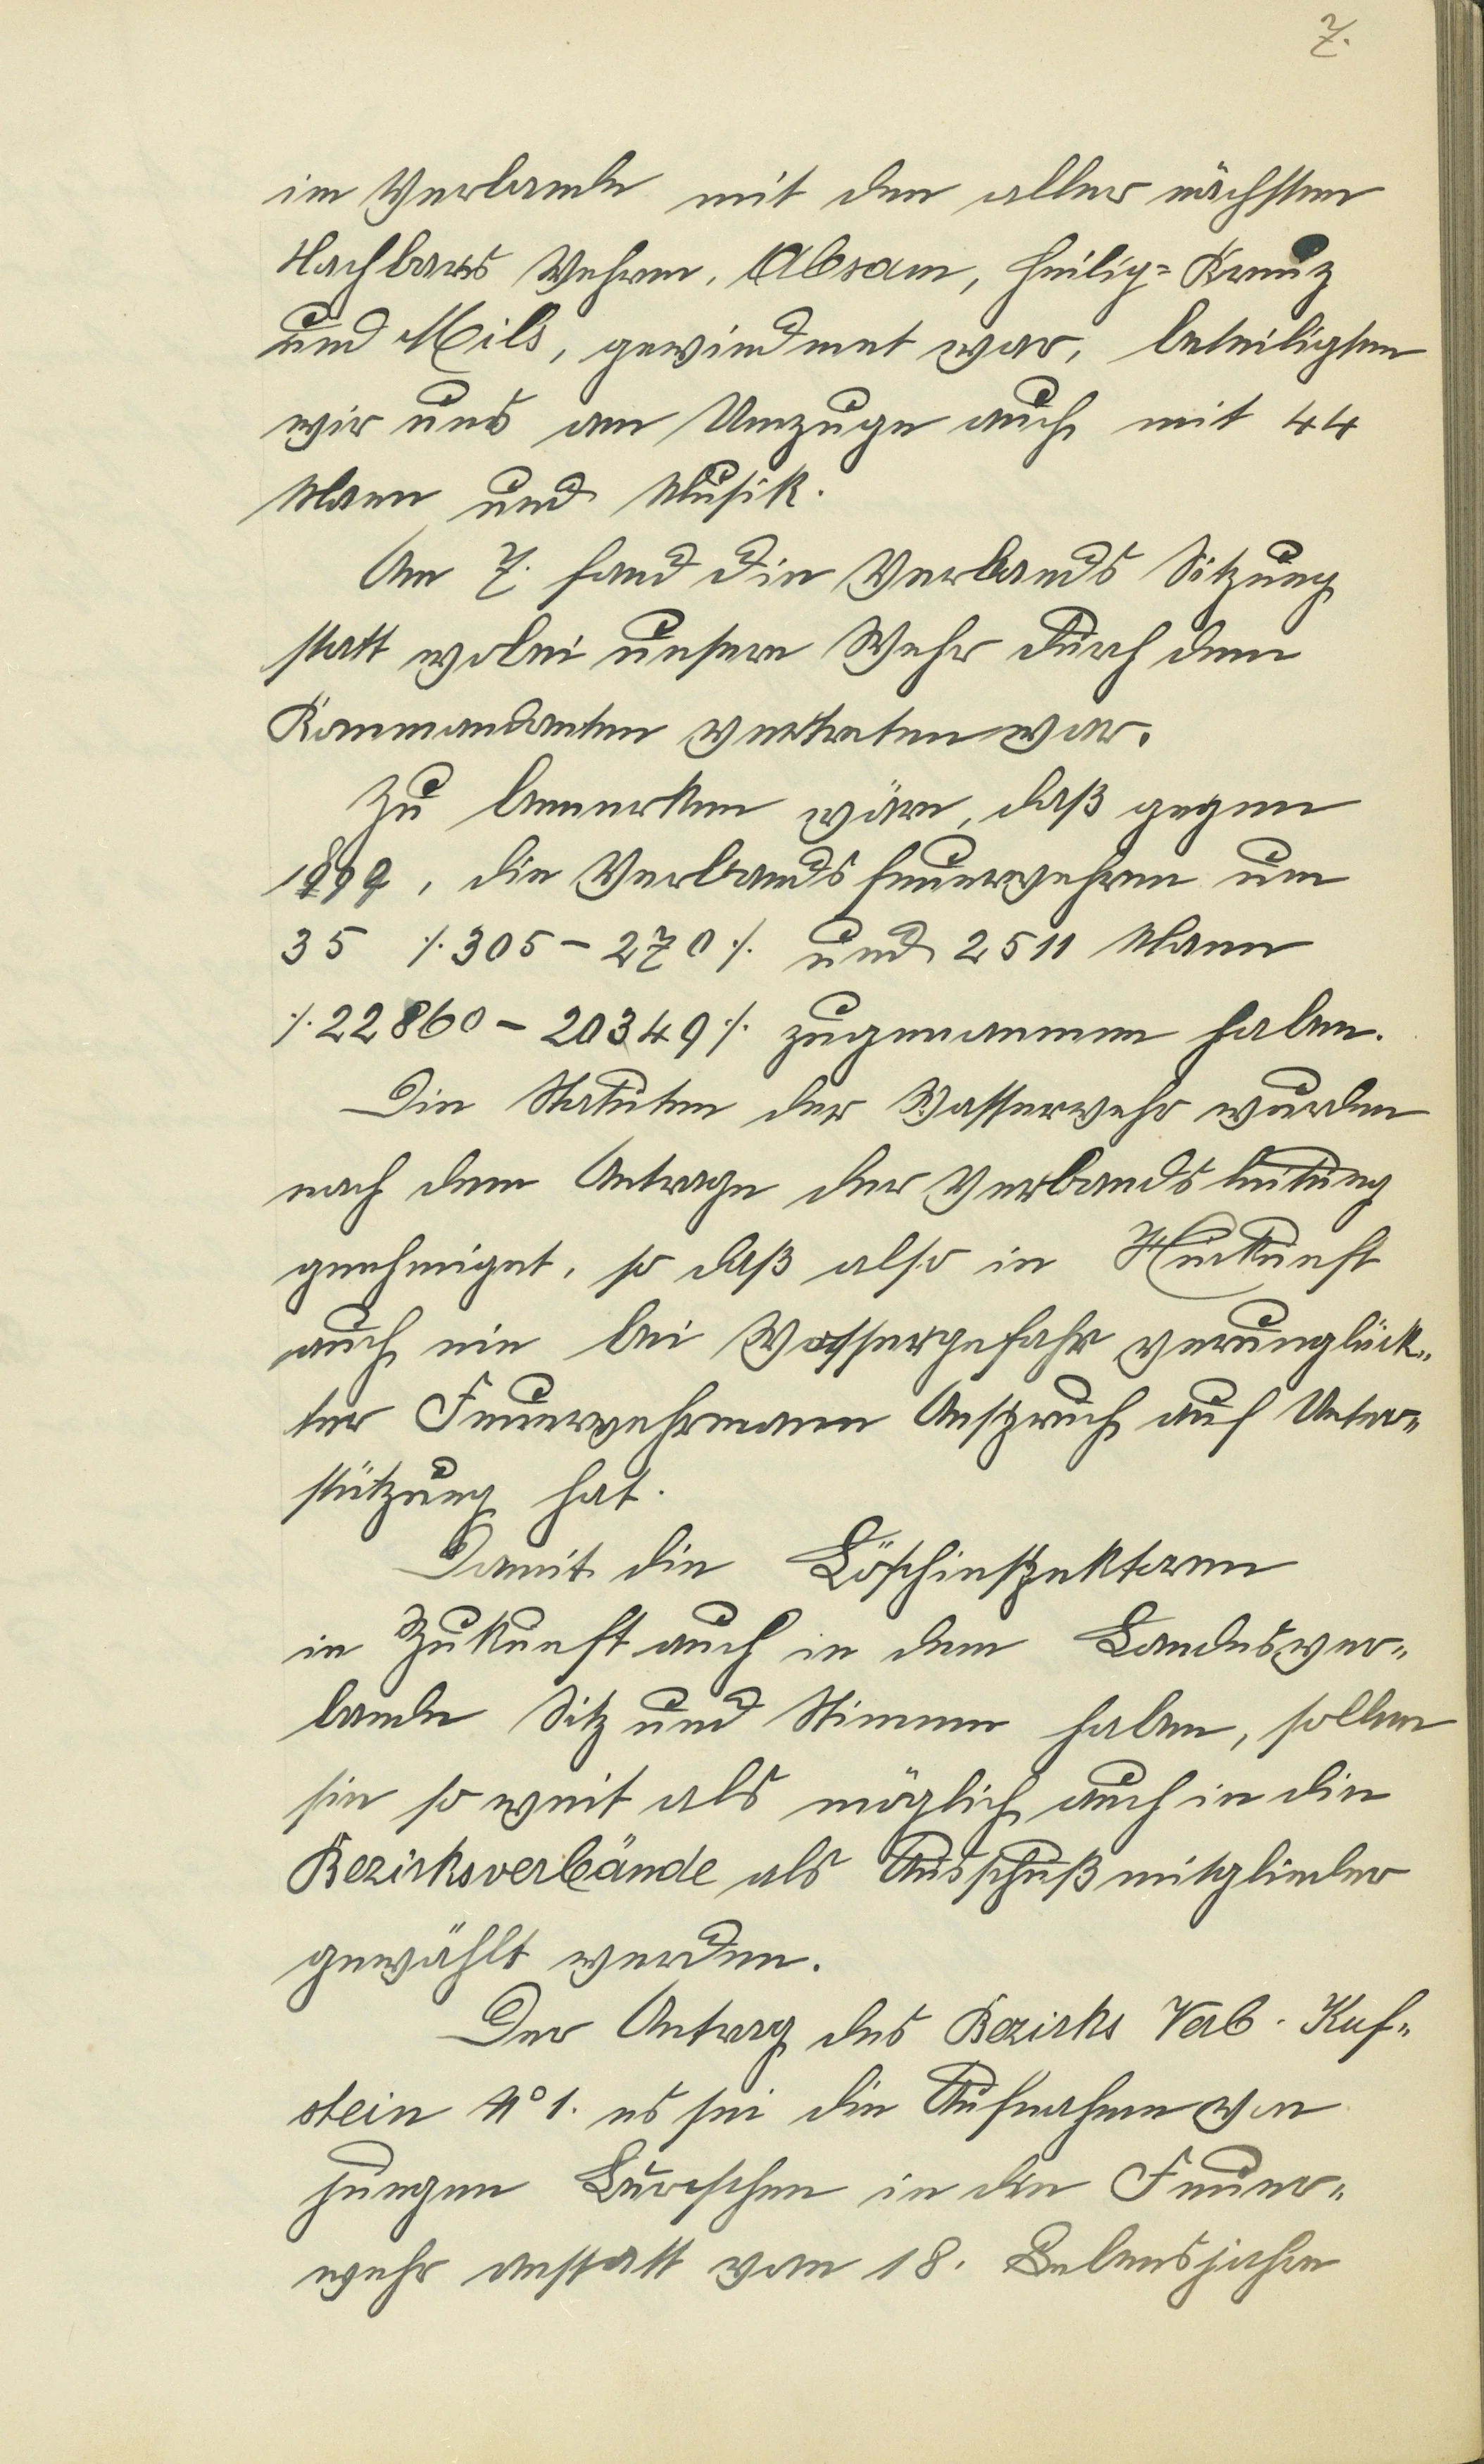 7.
im Verbande mit den aller nächsten
Nachbars Wehren, Absam, Heilig=Kreuz
und Mils, gewiedmet war, beteiligten
wir uns am Umzuge auch mit 44
Mann und Musik.
Am 7. fand die Verbands Sitzung
statt wobei unsere Wehr durch den
Kommandanten vertreten war.
Zu bemerken wäre, daß gegen
1899, die Verbandsfeuerwehren um
35 ⁒ 305 – 270 ⁒ und 2511 Mann
⁒ 22860 – 20349 ⁒ zugenommen haben.
Die Statuten der Wasserwehr wurden
nach dem Antrage der Verbandsleitung
genehmiget, so daß also in Hinkunft
auch ein bei Wassergefahr verunglück=
ter Feuerwehrmann Anspruch auf Unter=
stützung hat.
Damit die Löschinspektoren
in Zukunft auch in dem Landesver=
bande Sitz und Stimme haben, sollen
sie so weit als möglich auch in die
Bezirksverbände als Ausschußmitglieder
gewählt werden.
Der Antrag des Bezirks Verb. Kuf=
stein No 1. es sei die Aufnahme von
jungen Burschen in die Feuer=
wehr anstatt vom 18. Lebensjahre